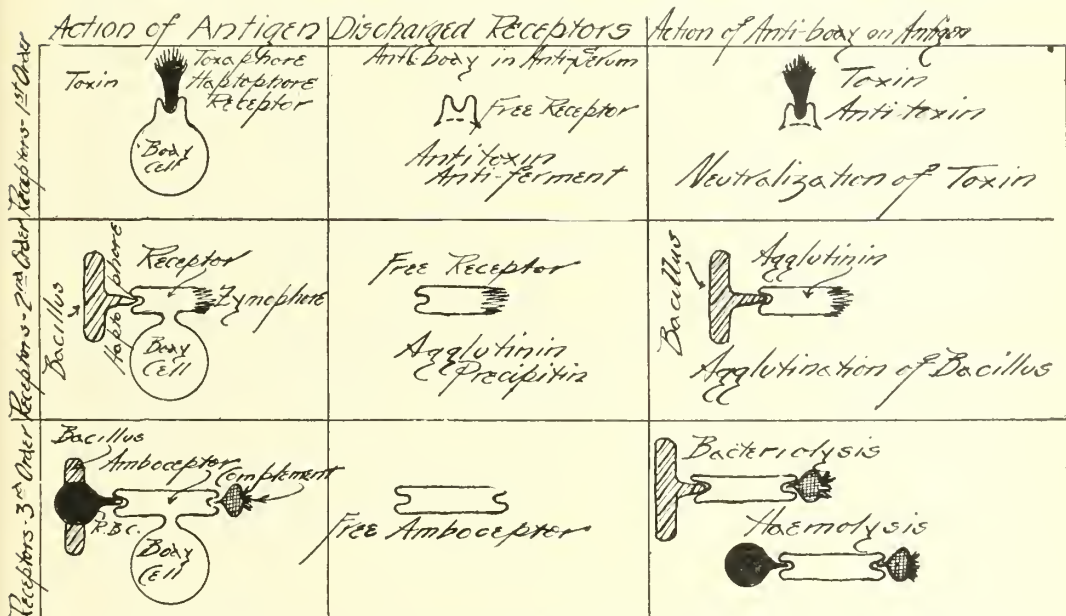 Action of Antigen
Discharged Receptors
Action of Anti-body on Antigen
Receptors-1st Order
Toxin
Toxaphore
Haptophore
Receptor
Body
Cell
Anti-body in Antiserum
Free Receptor
Antitoxin
Anti-ferment
Toxin
Anti-toxin
Neutralization of Toxin
Receptors-2nd Order
Bacillus
Haptophore
Receptor
Zymophore
Body
Cell
Free Receptor
Agglutinin
Precipitin
Bacillus
Agglutinin
Agglutination of Bacillus
Receptors-3rd Order
Bacillus
Amboceptor
Complement
R.B.C.
Body
Cell
Free Amboceptor
Bacteriolysis
Haemolysis